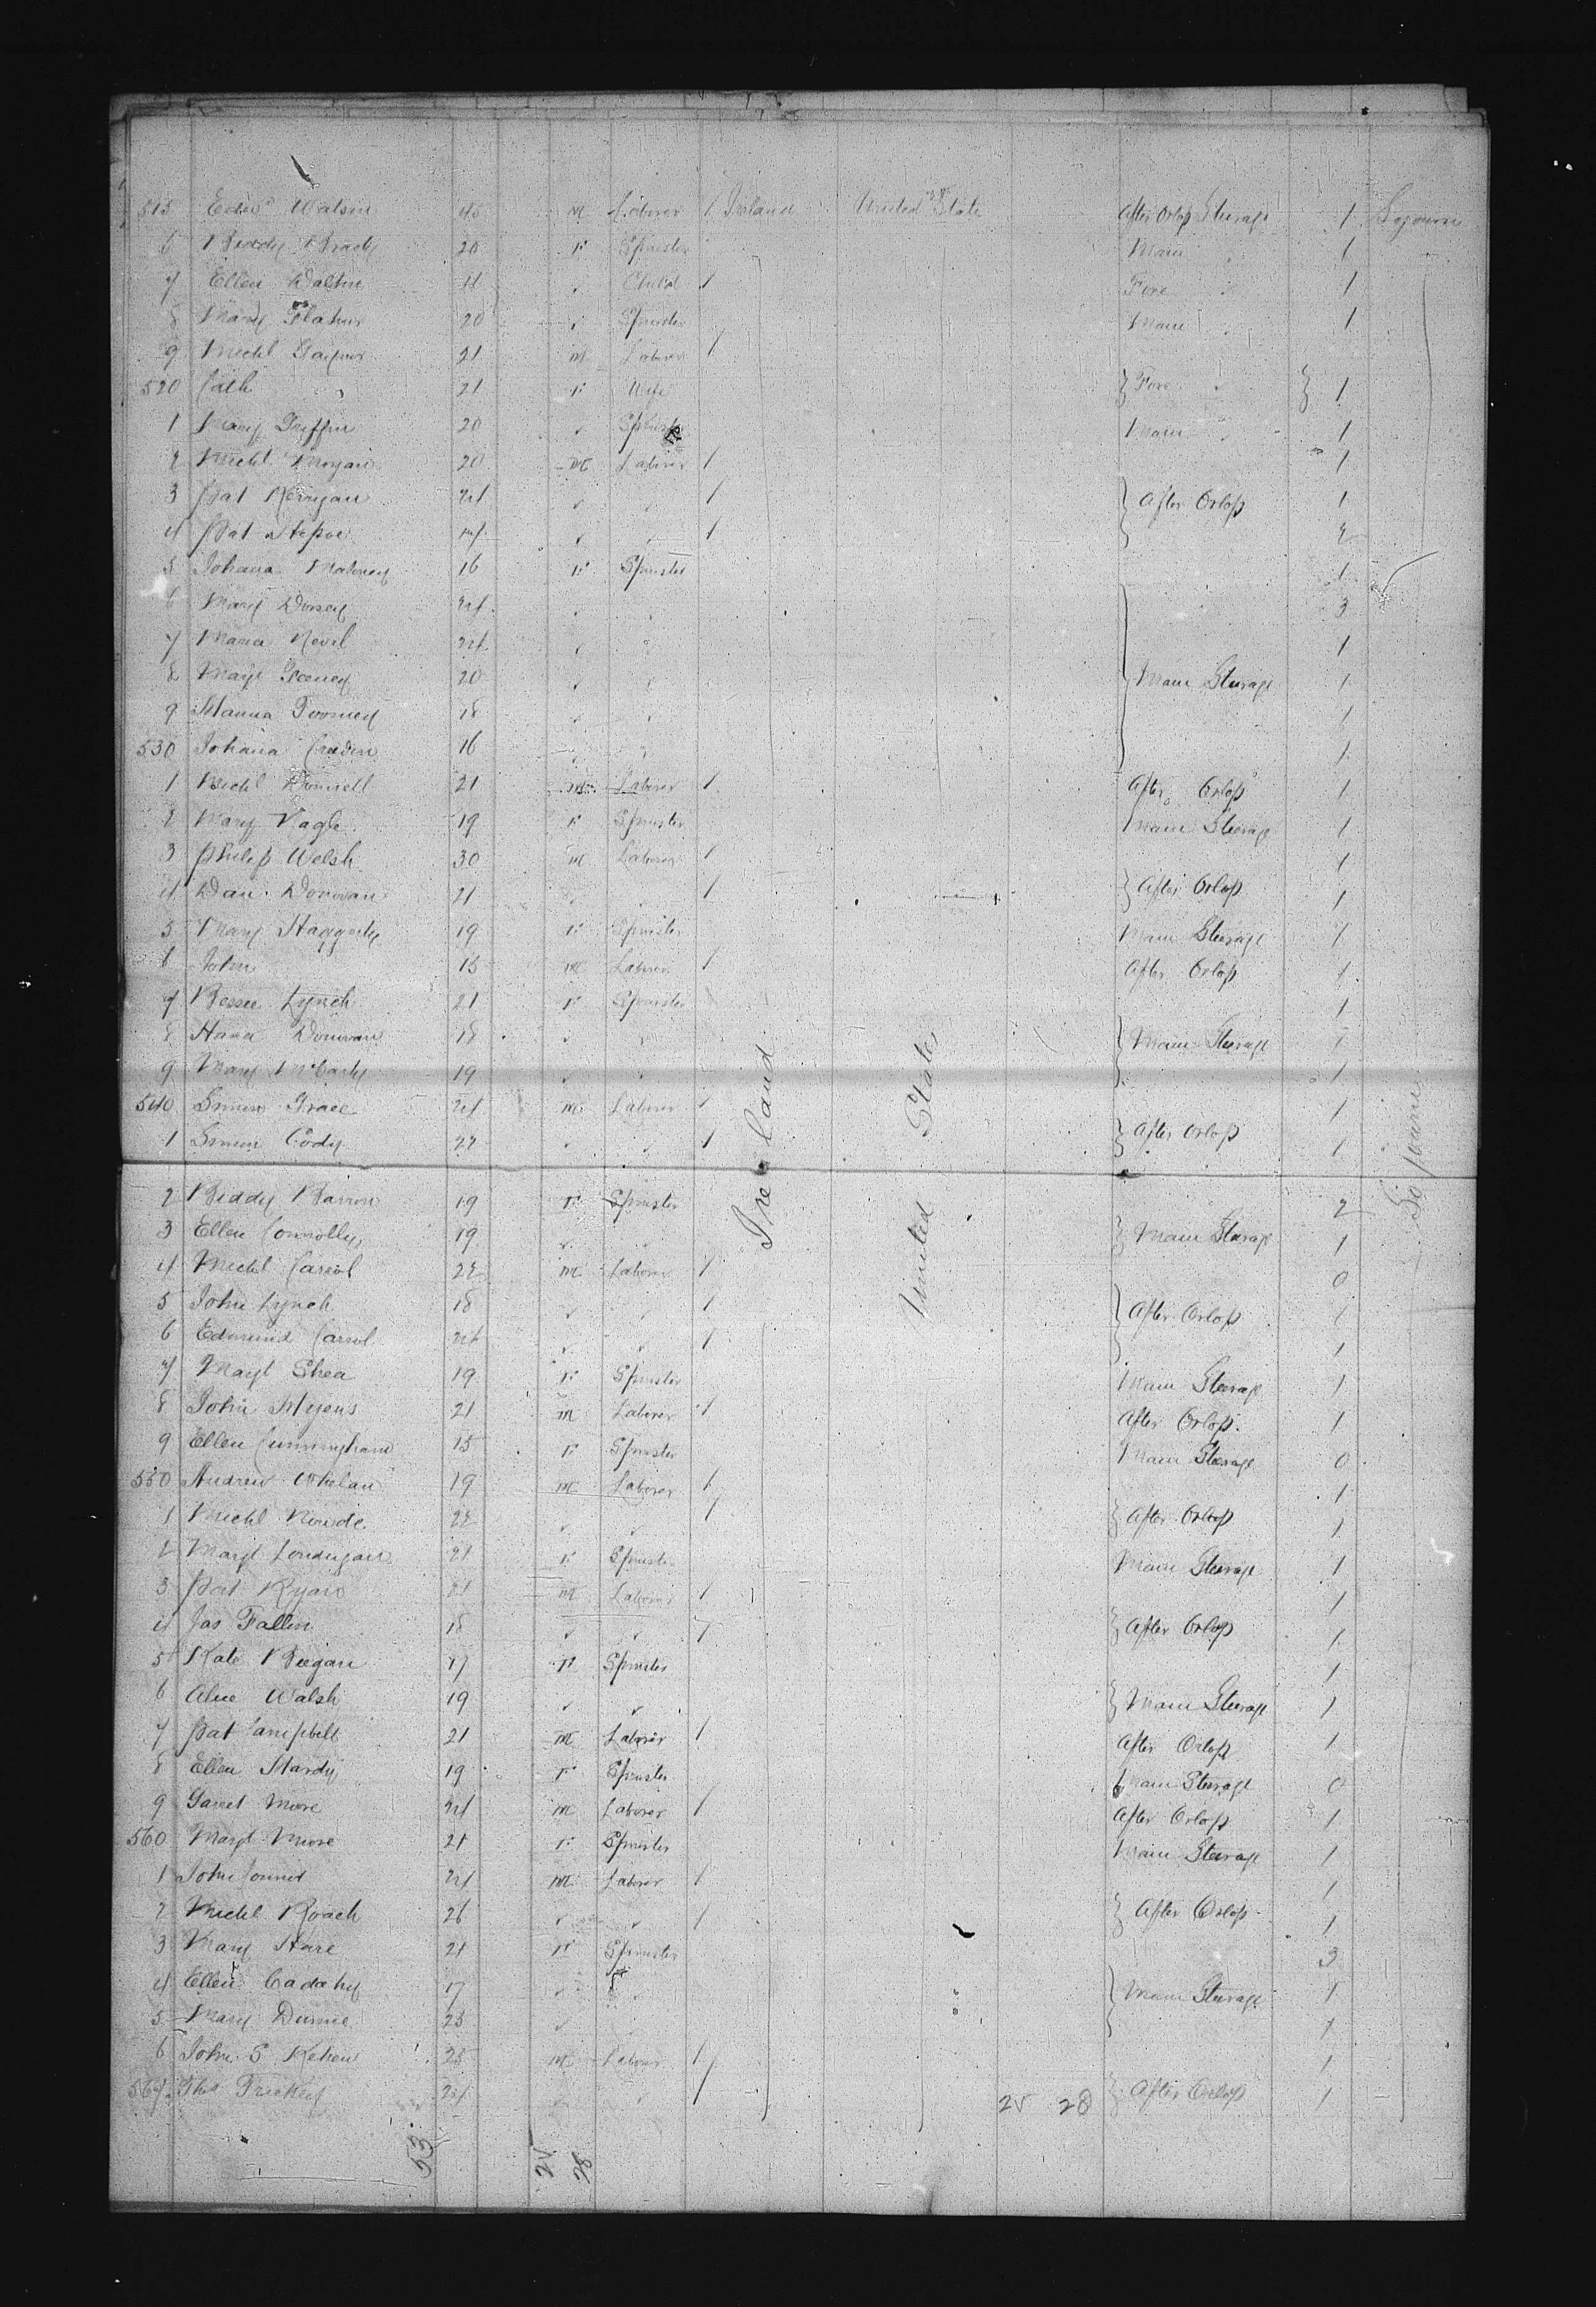 515 Edwd Watson 45 M Laborer 1 Ireland United State After Orlop Steerage 1 Sojourn
6 Biddy Brady 20 F Spinster Main " 1
7 Ellen Walsh 4 " Child 1 Fore " 1
8 Mary 20 " Spinster Main " 1
9 Michl 21 M Laborer 1
520 Cath " 21 F Wife } Fore " } 1
1 Mary Griffin 20 " Spinster Main " 1
2 Michl 20 M Laborer 1 1
3 Pat Kerrigan 24 " " 1 } After Orlop 1
4 Pat 24 " " 1 2
5 Johana Maloney 16 F Spinster 1
6 Mary Dorsey 24 " " 3
7 Maria Nevil 24 " " 1
8 Margt 20 " " } Main Steerage 1
9 Hanna Toomey 18 " " 1
530 Johana Creeden 16 " " 1
1 Michl Donnell 21 M Laborer 1 After Orlop 1
2 Mary Nagle 19 F Spinster Main Steerage 1
3 Philip Welsh 30 M Laborer 1 1
4 Dan Donovan 21 " " 1 } After Orlop 1
5 Mary Haggerty 19 F Spinster Main Steerage 1
6 John 15 M Laborer 1 After Orlop 1
7 Bessee Lynch 21 F Spinster 1
8 Hana Donovan 18 " " } Main Steerage 1
9 Mary McCarty 19 " " 1
540 Simon Grace 24 M Laborer 1 1
1 Simon Cody 22 " " 1 } After Orlop 1
Ireland United States Sojourn
2 Biddy Barron 19 F Spinster 2
3 Ellen Connolly 19 " " } Main Steerage 1
4 Michl Carrol 22 M Laborer 1 0
5 John Lynch 18 " " 1 } After Orlop 1
6 Edmund Carrol 24 " " 1 1
7 Margt Shea 19 F Spinster Main Steerage 1
8 John Myens 21 M Laborer 1 After Orlop 1
9 Ellen Cunningham 15 F Spinster Main Steerage 0
550 Andrew Whelan 19 M Laborer 1 1
1 Michl 22 " " 1 } After Orlop 1
2 Margt Londergan 21 F Spinster Main Steerage 1
3 Pat Ryan 21 M Laborer 1 1
4 Jas Fallin 18 " " 1 } After Orlop 1
5 Kate 17 F Spinster 1
6 Alice Walsh 19 " " } Main Steerage 1
7 Pat Campbell 21 M Laborer 1 After Orlop 1
8 Ellen Hardy 19 F Spinster Main Steerage 0
9 Garret Moore 24 M Laborer 1 After Orlop 1
560 Margt Moore 21 F Spinster Main Steerage 1
1 John Connet 24 M Laborer 1 1
2 Michl Roach 26 " " 1 } After Orlop 1
3 Mary Hare 21 F Spinster 3
4 Ellen Cadahy 17 " " } Main Steerage 1
5 Mary Dunne 23 " 1
6 John S Kehew 25 M Laborer 1 1
567 Thos Trickey 24 " " 1 } After Orlop 1
25 28
53 25 28